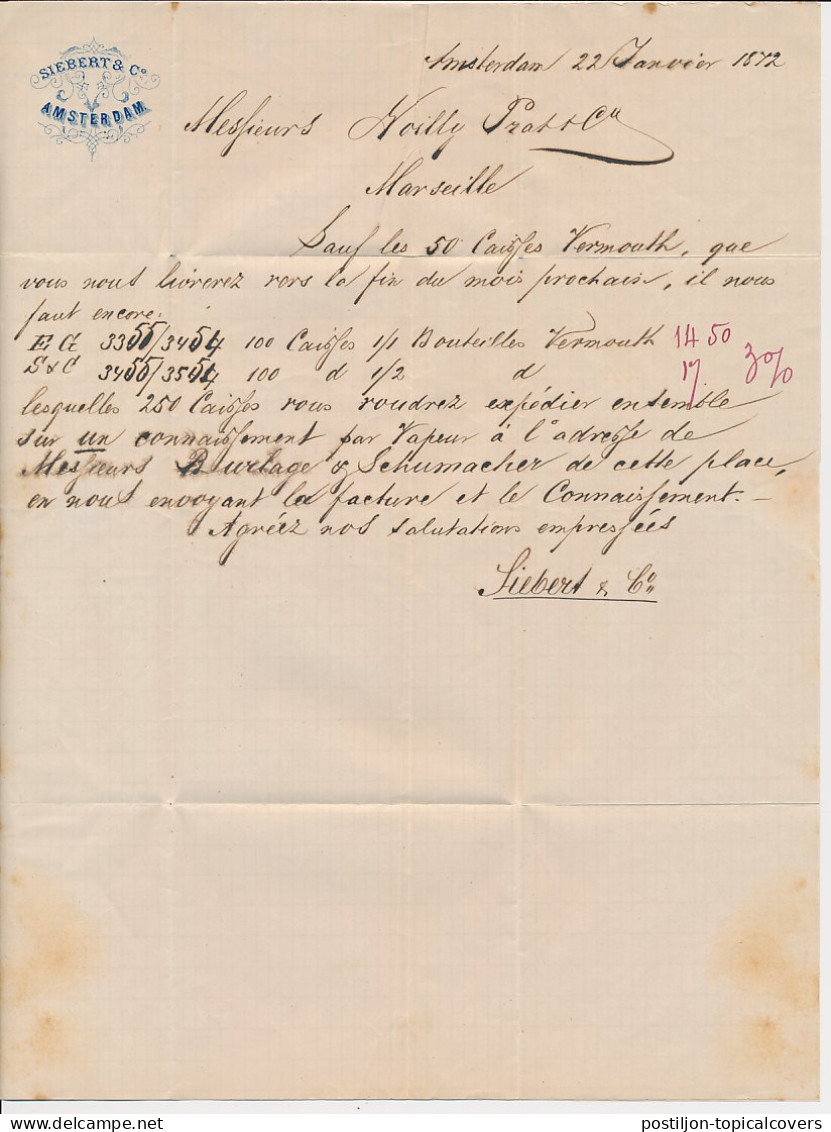 SIEBERT & Co
AMSTERDAM
Amsterdam 22 Janvier 1872
Messieurs Noilly Prat & Cie
Marseille
Sauf les 50 Caisses Vermouth, que
vous nous livrerez vers la fin du mois prochain, il nous
faut encore:
E. G. 3355/3454 100 Caisses 1/1 Bouteilles Vermouth 14 50
S & C 3455/3554 100 d 1/2 d 17 3%
lesquelles 250 Caisses vous voudrez expédier ensemble
sur un connaissement par Vapeur à l'adresse de
Messieurs Burlage & Schumacher de cette place,
en nous envoyant la facture et le Connaissement. –
Agréez nos salutations empressées
Siebert & Co
postiljon-topicalcovers